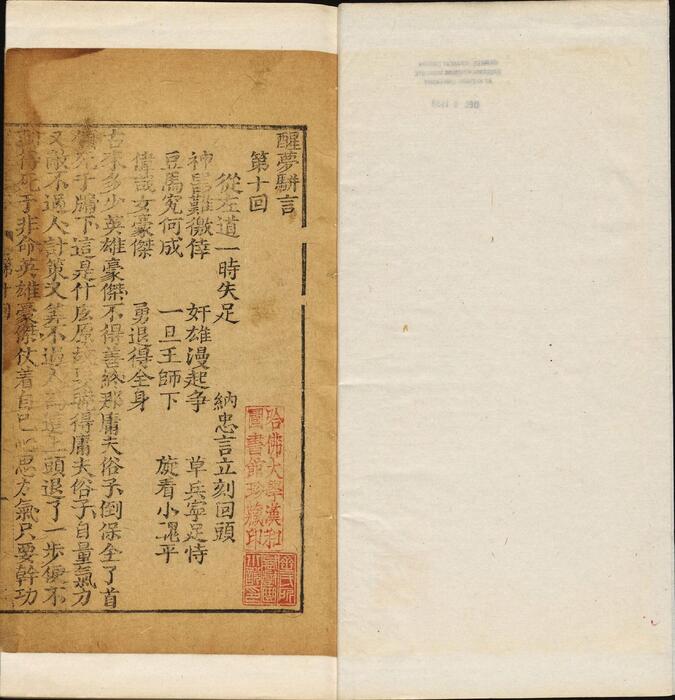 醒夢駢言
第十回
從左道一時失足　納忠言立刻回頭
神器難徼倖　奸雄漫起爭　草兵寧足恃
豆馬究何成　一旦王師下　旋看小醜平
偉哉女豪傑　勇退得全身
古來多少英雄豪傑不得善終那庸夫俗子倒保全了首
死于牖下這是什庅原故要曉得庸夫俗子自量氣力
又敵不過人計策又筭不過人為這上頭退了一步便不
得死于非命英雄豪傑仗着自己心思力氣只要幹功
第十回
哈佛大學漢和
圖書館珍藏印